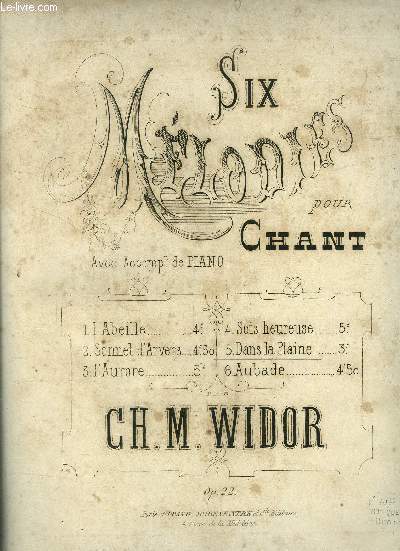 Le-livre.com
SIX
MÉLODIES
POUR
CHANT
Avec Accompt de PIANO
1. L'Abeille 4f
2. Sonnet d'Arvers 4f50
3. L'Aurore 5f
4. Sois heureuse 5f
5. Dans la Plaine 3f
6. Aubade 4f50
CH. M. WIDOR
Op. 22.
Paris